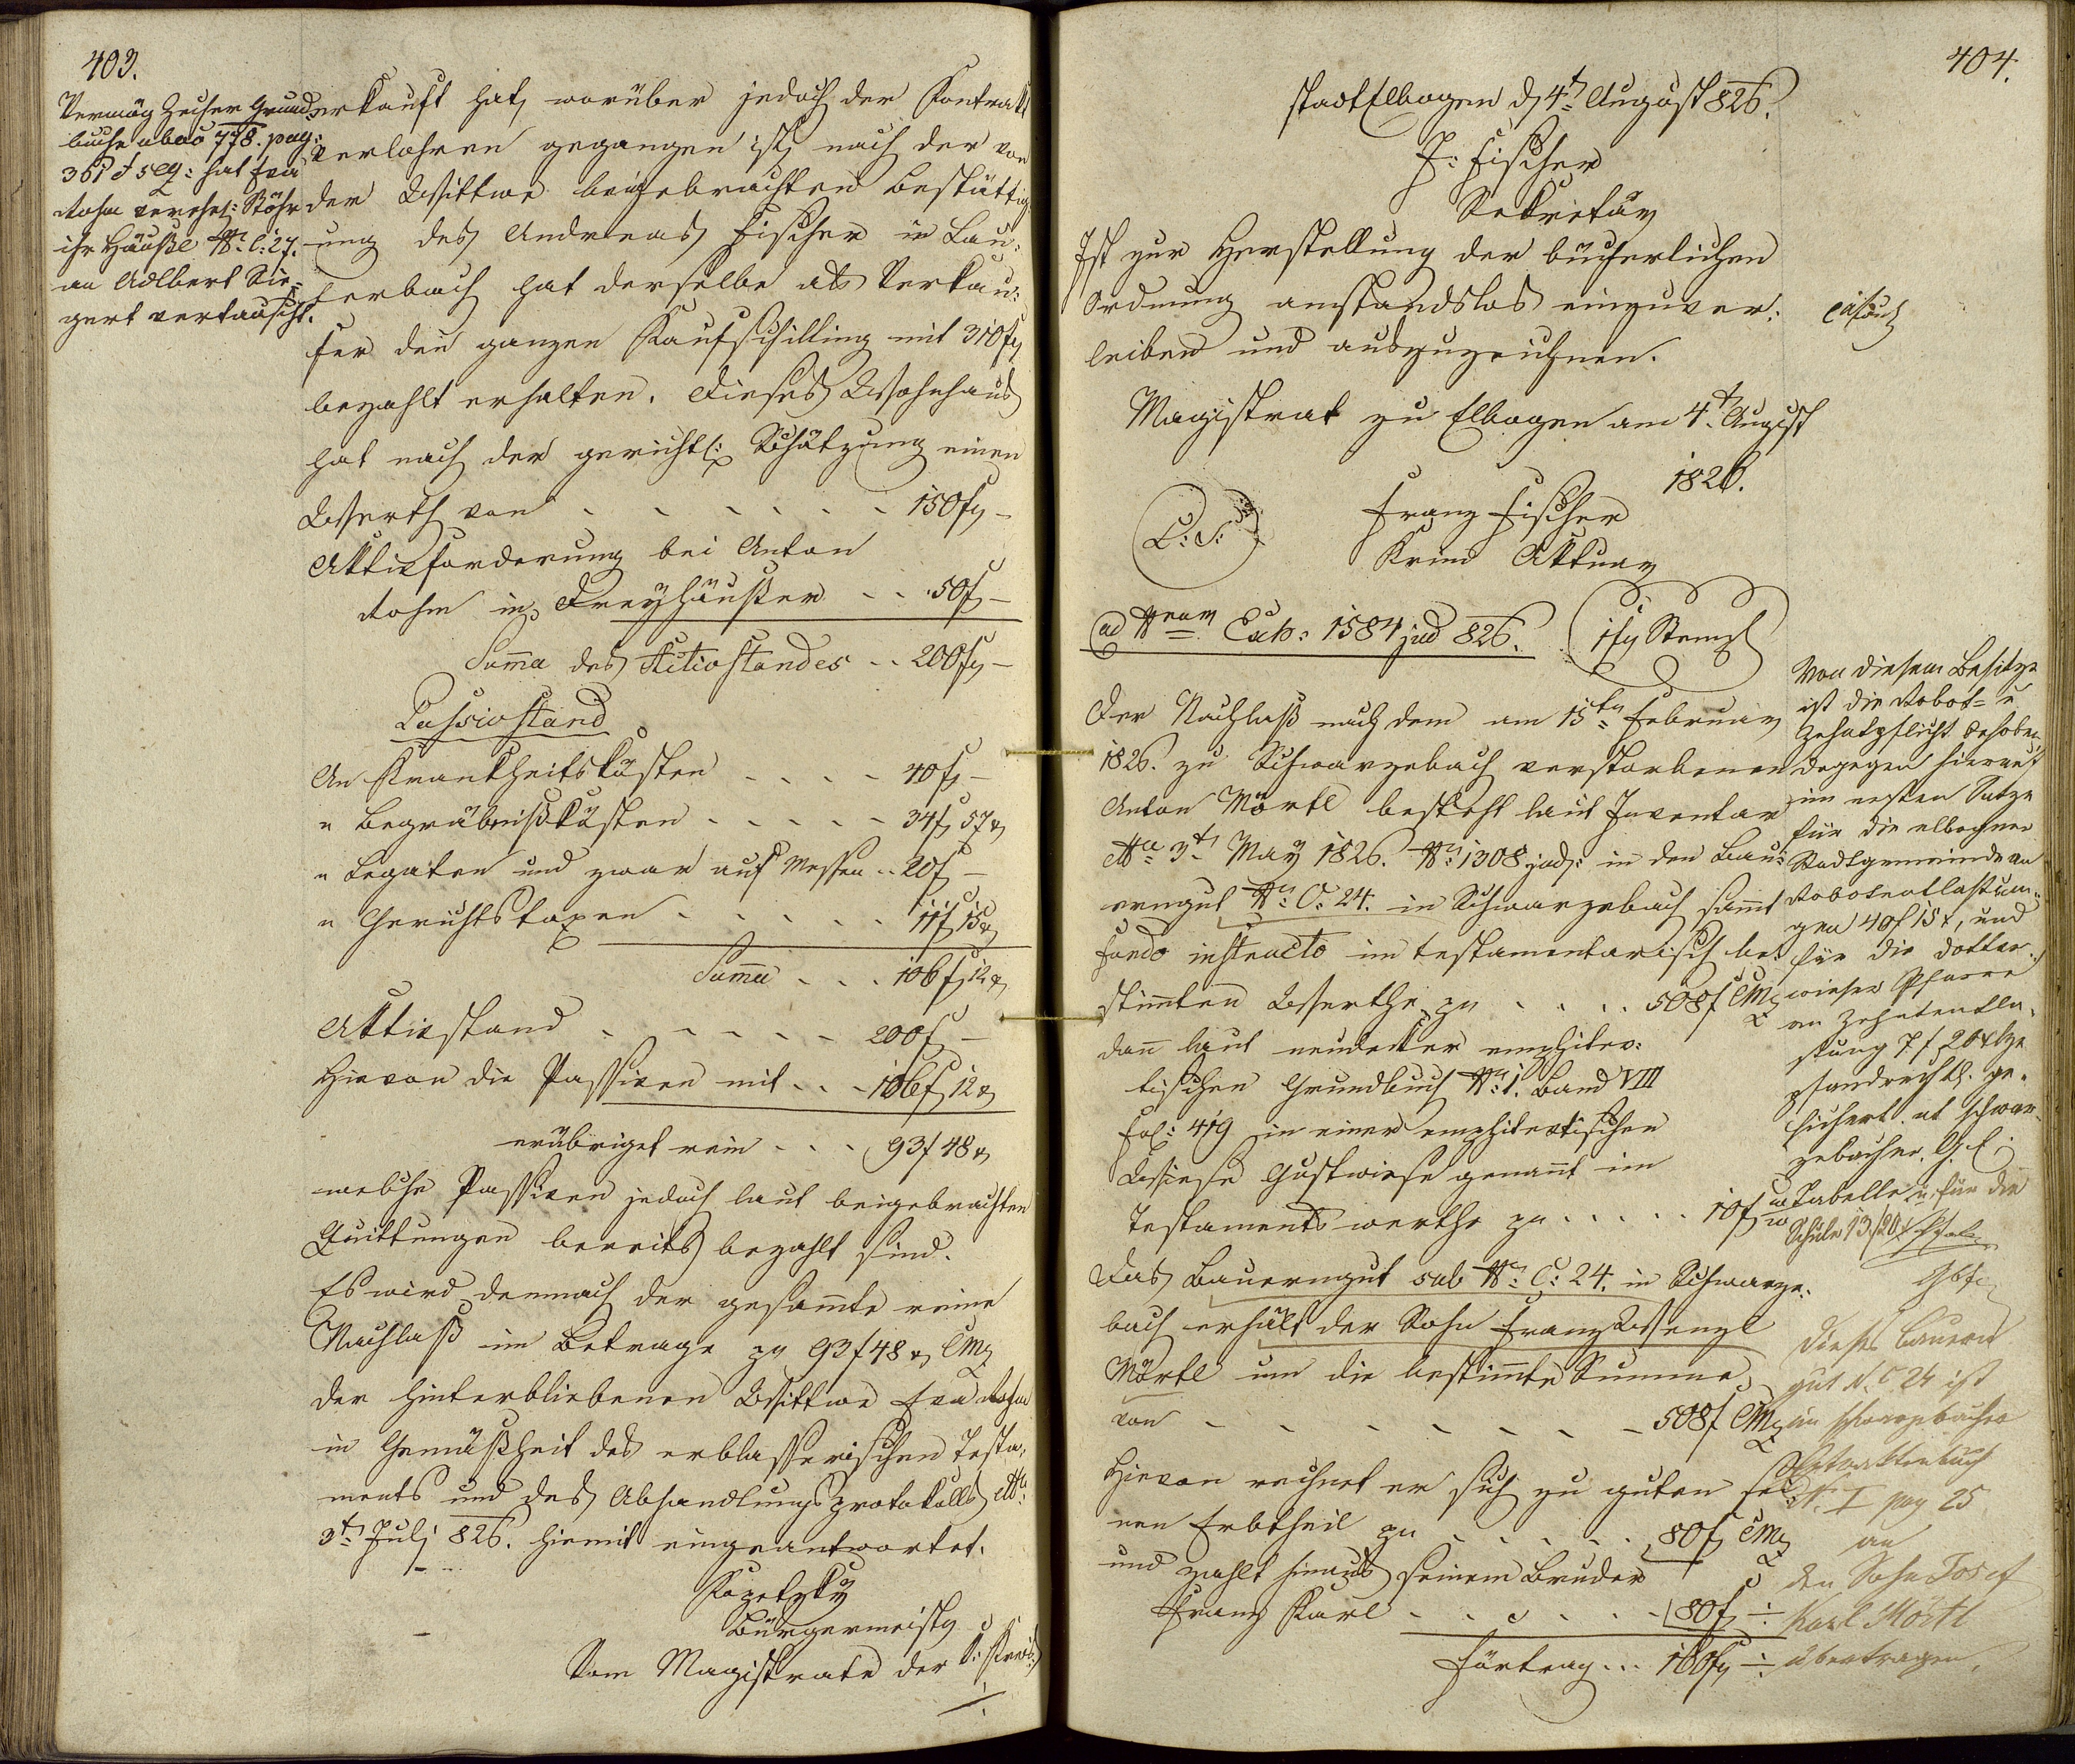 403.
Vermög Zecher Grund-
buchs ab ao 778. pag:
361 et seq: hat Eva
Rohm verehel: Stöhr
ihr Häußl No C: 27.
an Adlbert Sie-
gert vertauscht.
verkauft hat, worüber jedoch der Kontrakt
verlohren gegangen ist, nach der von
der Wittwe beigebrachten Bestättig-
ung des Andreas Fischer in Lau-
terbach hat derselbe als Verkäu-
fer den ganzen Kaufschilling mit 310 f
bezahlt erhalten. Dieses Wohnhaus
hat nach der gerichtl: Schätzung einen
Werth von - - - - - - 150 f -
Aktivforderung bei Anton
Rohm in Freyhäußer - - 50 f -
Suma des Activstandes - - 200 f -
Passivstand
An Krankheitskösten - - - - 40 f -
" Begräbnißkösten - - - - - 34 f 57 x
" Legaten und zwar auf Messen - - 20 f -
" Gerichtstaxen - - - - - 11 f 15 x
Suma - - - 106 f 12 x
Aktivstand - - - - - 200 f -
Hievon die Passiven mit - - - 106 f 12 x
erübriget rein - - - 93 f 48 x
welche Passiven jedoch laut beigebrachten
Quittungen bereits bezahlt sind.
Es wird demnach der gesamte reine
Nachlaß im Betrage zu 93 f 48 x CMz
der hinterbliebenen Wittwe Eva Rohm
in Gemäßheit des erblasserischen Testa-
ments und des Abhandlungsprotokolls dto
3t Juli 826. hiemit eingeantwortet.
Bürgermeister
Vom Magistrate der K: Kreis:
404.
stadt Elbogen d 4t August 826.
F: Fischer
Sekretär
Ist zur Herstellung der bücherlichen
Ordnung anstandslos einzuver-
leiben und auszuzeichnen.
Magistrat zu Elbogen am 4t August
1826.
L: S:
Franz Fischer
Krim Aktuar
ad Nrum Exh: 1584 jud 826.
1 f Stempl
Der Nachlaß nach dem am 15ten Februar
1826. zu Schwarzebach verstorbenen
Anton Mörtl besteht laut Inventar
dto 3t May 1826. No 1308 jud: in den Bau-
erngut No C: 24. in Schwarzebach samt
fundo instructo im testamentarisch be-
stimten Werthe zu - - - - 508 f CMz
dan laut neudecker emphitev-
tischen Grundbuch No 1. Band VIII
fol: 419 in einer emphitevtischen
Wiese Gustwiese genant im
Testamentswerthe zu - - - - - 10 f
Das Bauerngut sub No C: 24. in Schwarze-
bach erhält der Sohn Franz Wenzl
Mörtl um die bestimte Summe
von - - - - - - - 508 f CMz
Hievon rechnet er sich zu guten sei-
nen Erbtheil zu - - - - - 80 f CMz
und zahlt hinaus seinem Bruder
Franz Karl - - - - - - 80 f -
Fürtrag - - - 160 f -
Von diesem Besitze
ist die Robot- u
Zehetpflicht behoben,
dagegen hierauf
im ersten Satze
für die elbogner
Stadtgemeinde an
Robotentlastun-
gen 40 f 15 x, und
für die Dotter-
wieser Pfarre
an Zehetentla-
stung 7 f 20 x
pfandrechtl. ge-
sichert. ut Schwar-
zebacher G. E.
Tabelle u. für die
Schule 13 f 20 x
Dieses Bauern
gut N. C 24 ist
im schwarzebacher
Kontraktenbuch
N. I pag 25
an
den Sohn Josef
Karl Mörtl
übertragen.